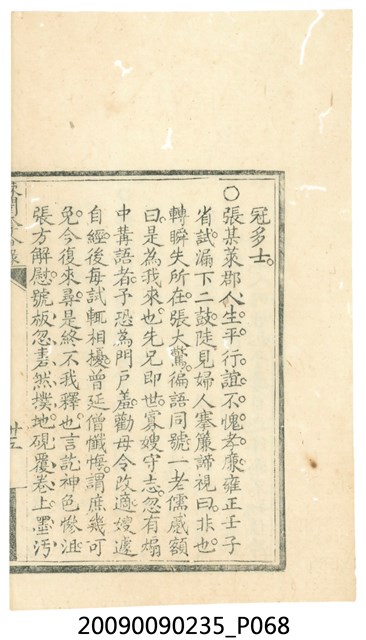 冠多士
○張某萊郡人生平行誼不愧孝廉雍正壬子
省試漏下二鼓陡見婦人搴簾諦視曰非也
轉瞬失所在張大驚徧語同號一老儒感額
曰是為我來也先兄即世寡嫂守志忽有煽
中冓語者予恐為門戶羞勸母令改適嫂遽
自經後每試輒相擾曾延僧懺悔謂庶幾可
免今復來尋是終不我釋也言訖神色慘沮
張方解慰號板忽砉然撲地硯覆卷上墨汚
廿五
20090090235_P068